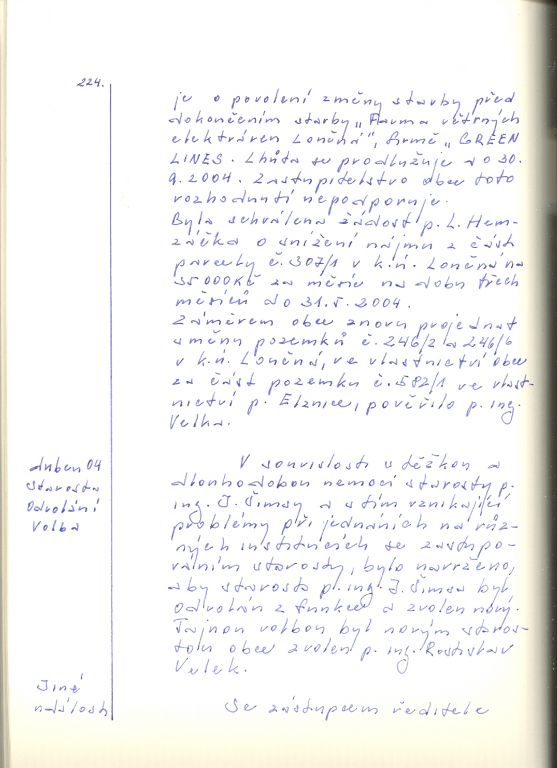 224.
je o povolení změny stavby před
dokončením stavby „Farma větrných
elektráren Loučná", firmě „GREEN
LINES. Lhůta se prodlužuje do 30.
9. 2004. Zastupitelstvo obce toto
rozhodnutí nepodporuje.
Byla schválena žádost p. L. Hem-
záčka o snížení nájmu z části
parcely č. 307/1 v k.ú. Loučná na
35000Kč za měsíc na dobu třech
měsíců do 31.5.2004.
Záměrem obce znovu projednat
směnu pozemků č. 246/2 a 246/6
v k.ú. Loučná, ve vlastnictví obce
za část pozemku č. 582/1 ve vlast-
nictví p. Elznice, pověřilo p. ing.
Velka.
duben 04
Starosta
Odvolání
Volba
V souvislosti s těžkou a
dlouhodobou nemocí starosty p.
ing. J. Šimsy a s tím vznikající
problémy při jednáních na růz-
ných institucích se zastupo-
váním starosty, bylo navrženo,
aby starosta p. ing. J. Šimsa byl
odvolán z funkce a zvolen nový.
Tajnou volbou byl novým staros-
tou obce zvolen p. ing. Rostislav
Velek.
Jiné
události
Se zástupcem ředitele